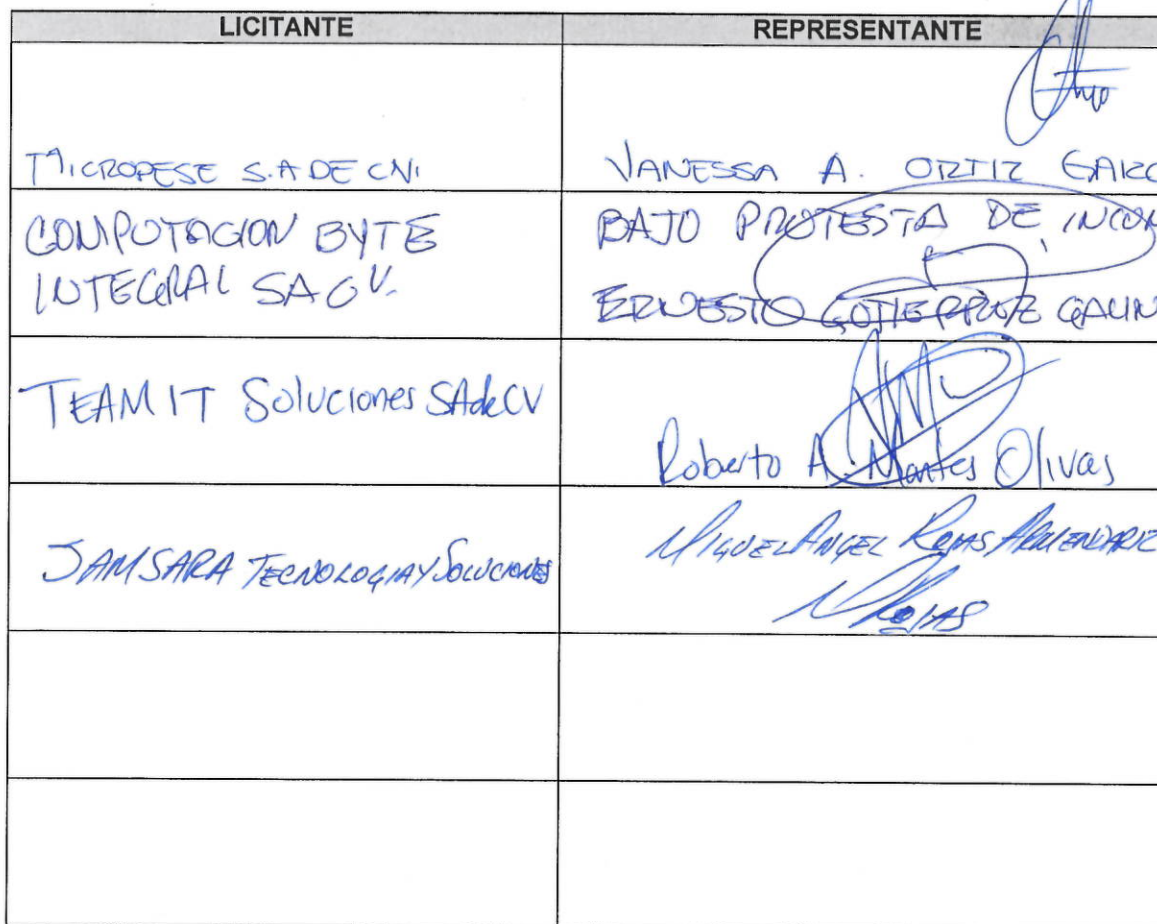 LICITANTE
REPRESENTANTE
MICROPESE S.A DE CV.
VANESSA A. ORTIZ GARC
COMPUTACION BYTE
INTEGRAL SA CV.
BAJO PROTESTA DE INCON
ERNESTO GUTIERREZ GALIN
TEAM IT Soluciones SA de CV
Roberto A. Montes Olivas
SAMSARA TECNOLOGIA Y SOLUCIONES
MIGUEL ANGEL ROJAS ARMENDARIZ
ROJAS